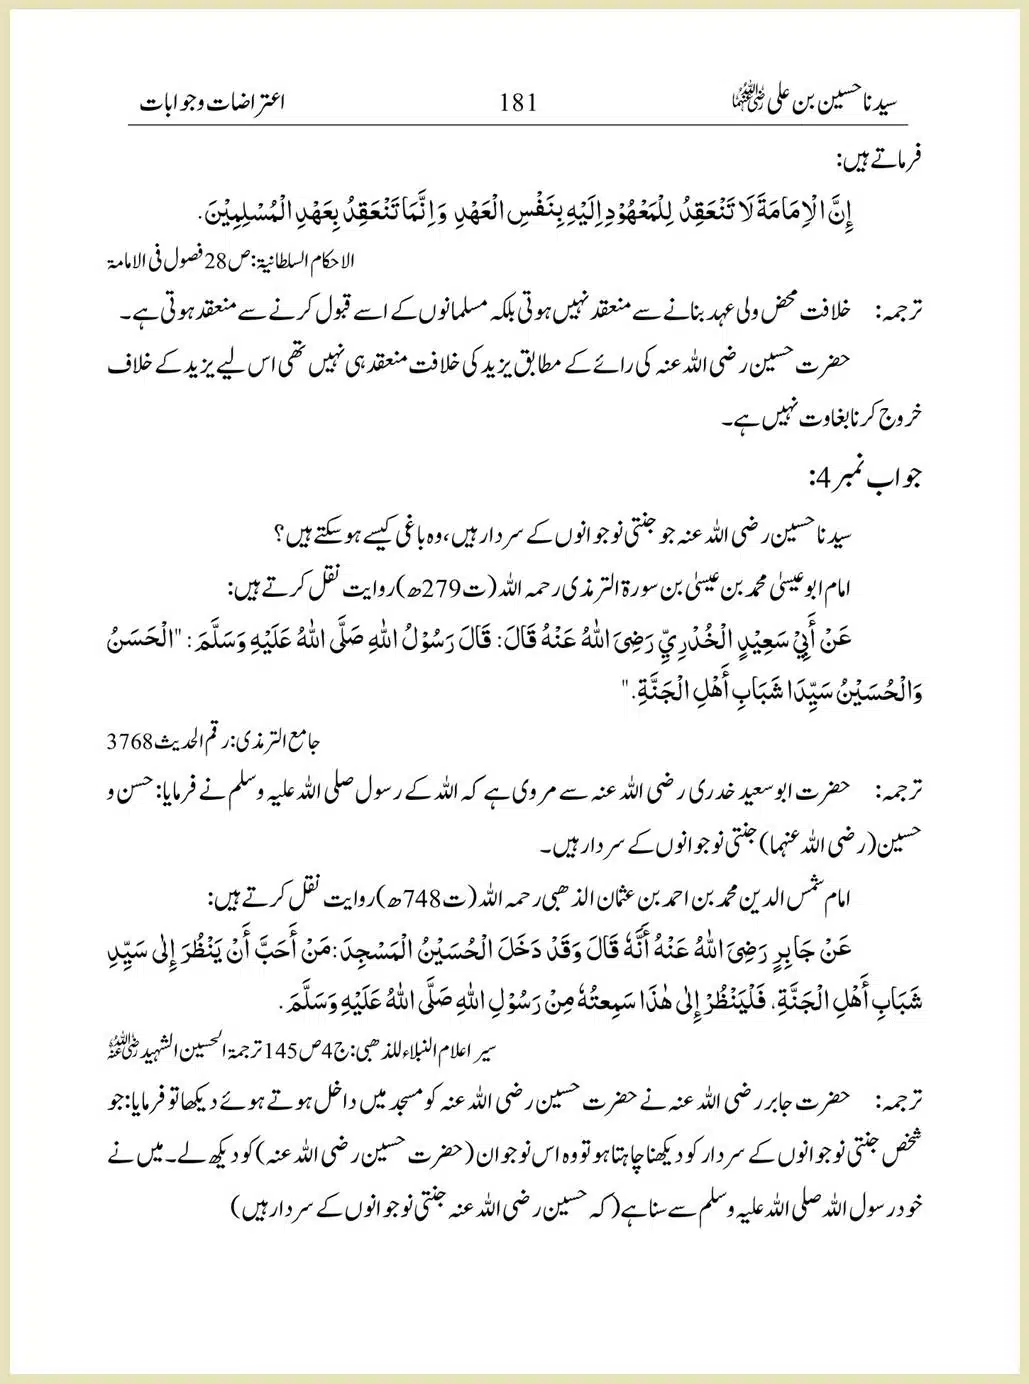 سیدنا حسین بن علی رضی اللہ عنہما 181 اعتراضات و جوابات
فرماتے ہیں:
إِنَّ الْإِمَامَةَ لَا تَنْعَقِدُ لِلْمَعْهُوْدِ إِلَيْهِ بِنَفْسِ الْعَهْدِ وَإِنَّمَا تَنْعَقِدُ بِعَهْدِ الْمُسْلِمِيْنَ.
الاحکام السلطانیۃ: ص28 فصول فی الامامۃ
ترجمہ: خلافت محض ولی عہد بنانے سے منعقد نہیں ہوتی بلکہ مسلمانوں کے اسے قبول کرنے سے منعقد ہوتی ہے۔
حضرت حسین رضی اللہ عنہ کی رائے کے مطابق یزید کی خلافت منعقد ہی نہیں تھی اس لیے یزید کے خلاف
خروج کرنا بغاوت نہیں ہے۔
جواب نمبر 4:
سیدنا حسین رضی اللہ عنہ جو جنتی نوجوانوں کے سردار ہیں، وہ باغی کیسے ہو سکتے ہیں؟
امام ابو عیسیٰ محمد بن عیسیٰ بن سورۃ الترمذی رحمہ اللہ (ت279ھ) روایت نقل کرتے ہیں:
عَنْ أَبِيْ سَعِيْدٍ الْخُدْرِيِّ رَضِيَ اللهُ عَنْهُ قَالَ: قَالَ رَسُوْلُ اللهِ صَلَّى اللهُ عَلَيْهِ وَسَلَّمَ: "الْحَسَنُ
وَالْحُسَيْنُ سَيِّدَا شَبَابِ أَهْلِ الْجَنَّةِ."
جامع الترمذی: رقم الحدیث 3768
ترجمہ: حضرت ابو سعید خدری رضی اللہ عنہ سے مروی ہے کہ اللہ کے رسول صلی اللہ علیہ وسلم نے فرمایا: حسن و
حسین (رضی اللہ عنہما) جنتی نوجوانوں کے سردار ہیں۔
امام شمس الدین محمد بن احمد بن عثمان الذھبی رحمہ اللہ (ت748ھ) روایت نقل کرتے ہیں:
عَنْ جَابِرٍ رَضِيَ اللهُ عَنْهُ أَنَّهٗ قَالَ وَقَدْ دَخَلَ الْحُسَيْنُ الْمَسْجِدَ: مَنْ أَحَبَّ أَنْ يَنْظُرَ إِلٰى سَيِّدِ
شَبَابِ أَهْلِ الْجَنَّةِ، فَلْيَنْظُرْ إِلٰى هٰذَا سَمِعْتُهٗ مِنْ رَسُوْلِ اللهِ صَلَّى اللهُ عَلَيْهِ وَسَلَّمَ.
سیر اعلام النبلاء للذھبی: ج4 ص145 ترجمۃ الحسین الشہید رضی اللہ عنہ
ترجمہ: حضرت جابر رضی اللہ عنہ نے حضرت حسین رضی اللہ عنہ کو مسجد میں داخل ہوتے ہوئے دیکھا تو فرمایا: جو
شخص جنتی نوجوانوں کے سردار کو دیکھنا چاہتا ہو تو وہ اس نوجوان (حضرت حسین رضی اللہ عنہ) کو دیکھ لے۔ میں نے
خود رسول اللہ صلی اللہ علیہ وسلم سے سنا ہے (کہ حسین رضی اللہ عنہ جنتی نوجوانوں کے سردار ہیں)